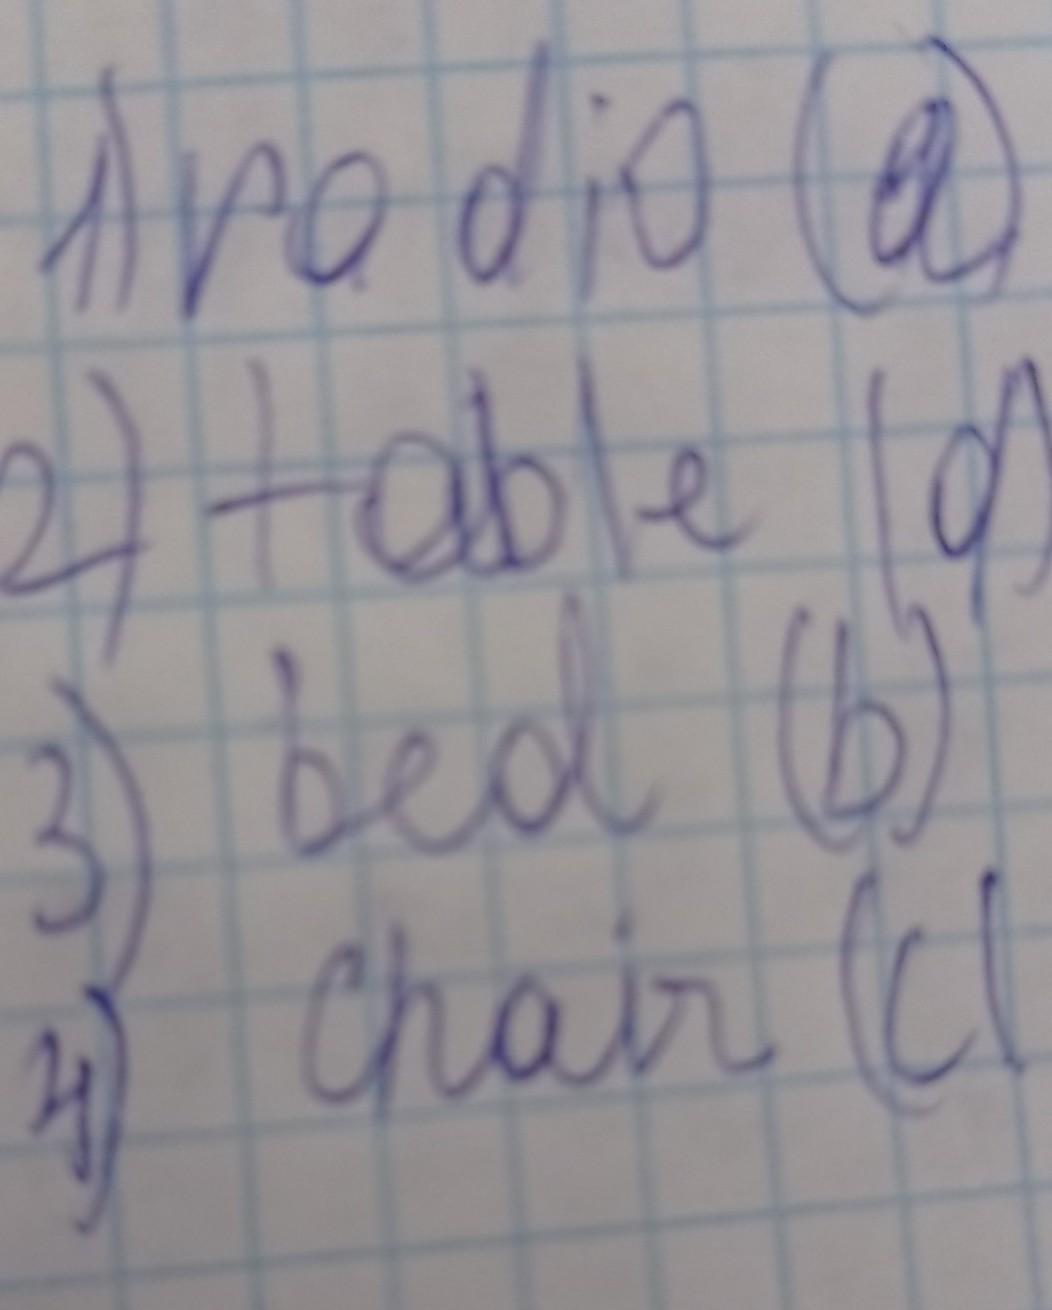 1) radio (a)
2) table (q)
3) bed (b)
4) chair (c)